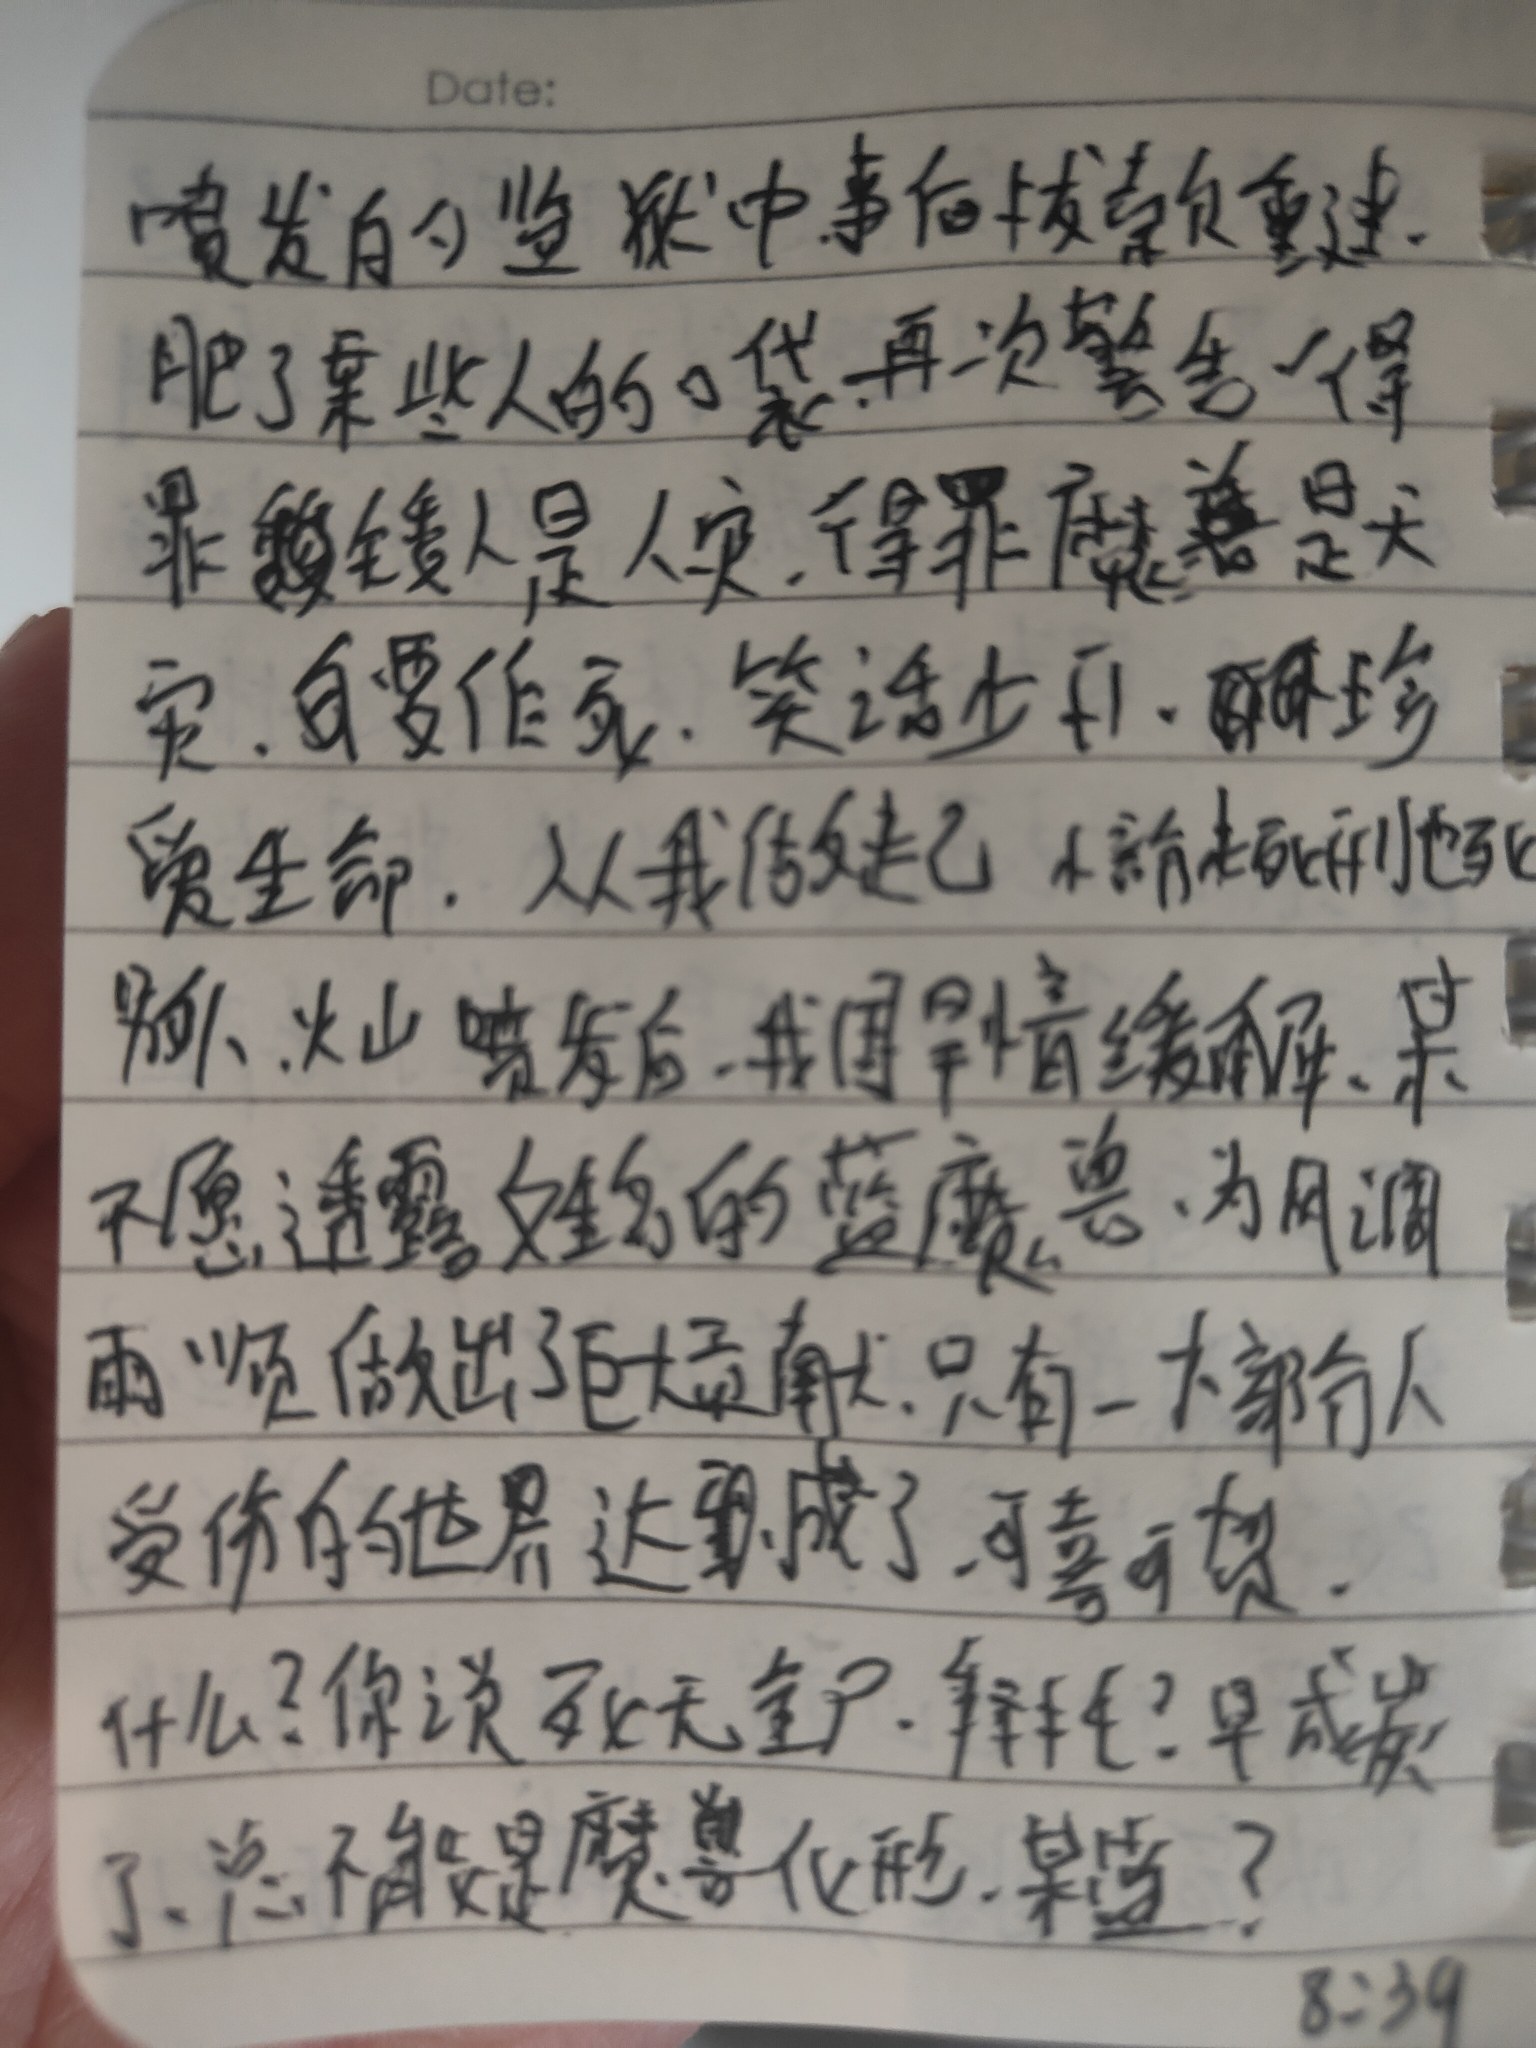 Date:
喷发的监狱中.事后拨款重建.
肥了某些人的口袋.再次警告,得
罪矮人是人灾.得罪魔兽是天
灾.自要作死.笑话少刊.珍
爱生命.从我做起
别人.火山喷发后.我国旱情缓解.某
不愿透露姓名的蓝魔兽.为风调
雨顺做出了巨大贡献.只有一大部分人
受伤的世界达成了.可喜可贺.
什么?你说死无全尸.早成炭
了.总不能是魔兽化形.某蓝?
8:39